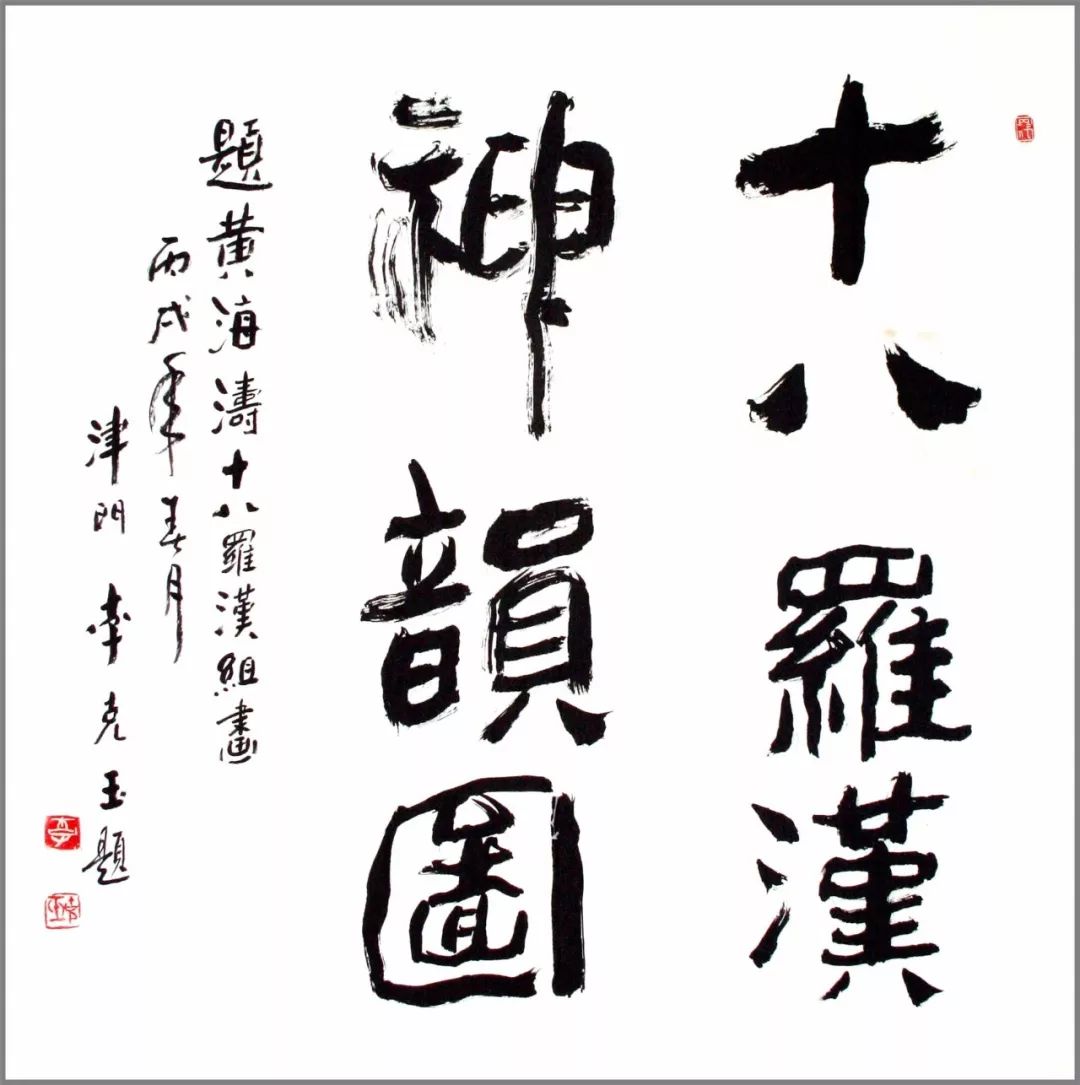 十八羅漢
神韻圖
題黄海濤十八羅漢組畫
丙戌年春月
津門 李克玉題
李